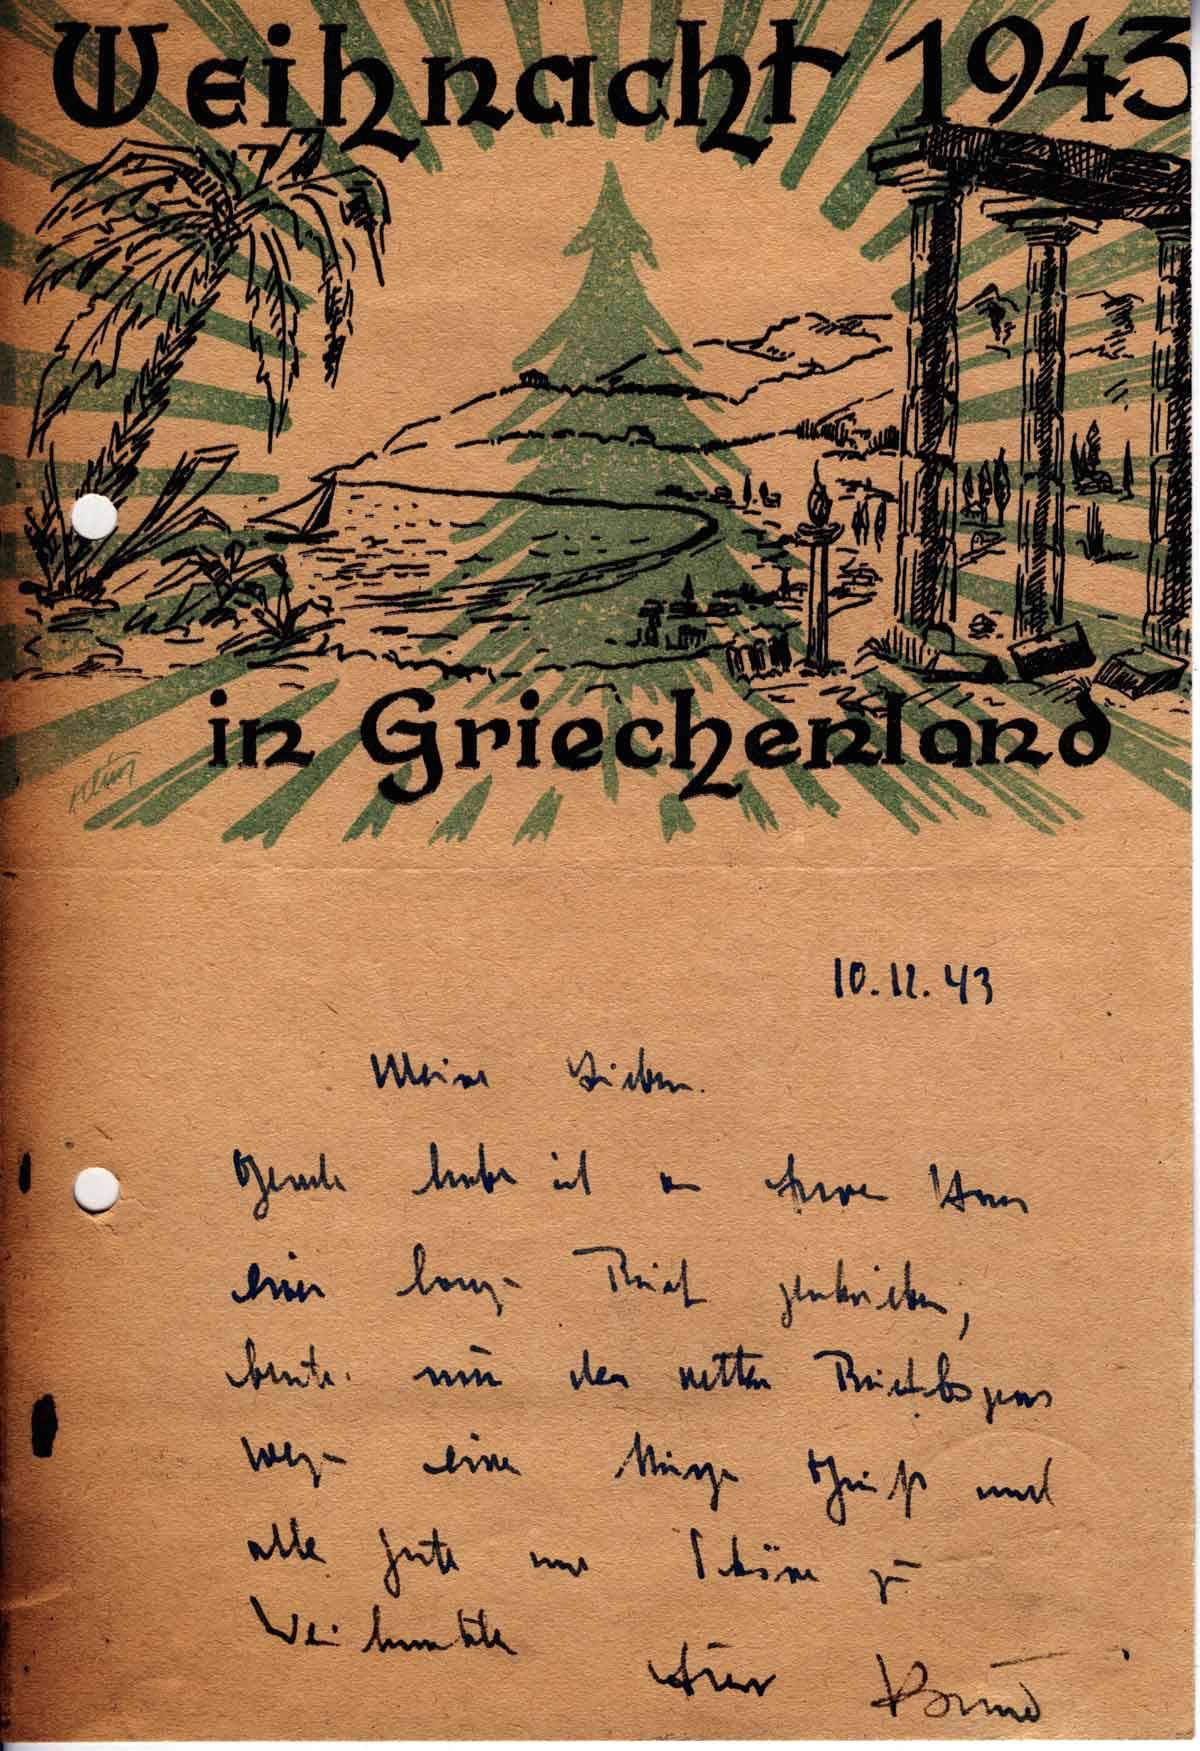 Weihnacht 1943
in Griechenland
10.12.43
Meine Lieben.
Gerade habe ich an
einen langen Brief geschrieben,
heute nur den netten
wegen einen Grüß und
alle Gute und Schöne zu
Weihnachten
Euer Bruno